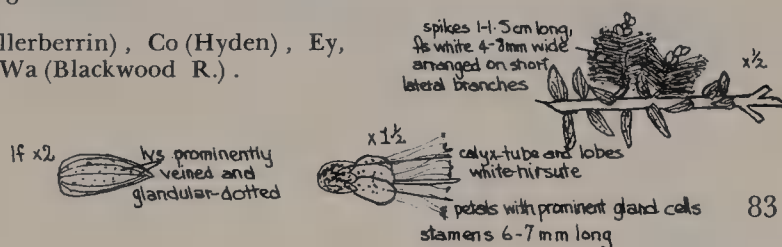 llerberrin), Co (Hyden), Ey,
Wa (Blackwood R.).
spikes 1-1.5cm long,
fls white 4-8mm wide
arranged on short
lateral branches
x½
lf x2
lvs prominently
veined and
glandular-dotted
x1½
calyx-tube and lobes
white-hirsute
petals with prominent gland cells
stamens 6-7mm long
83